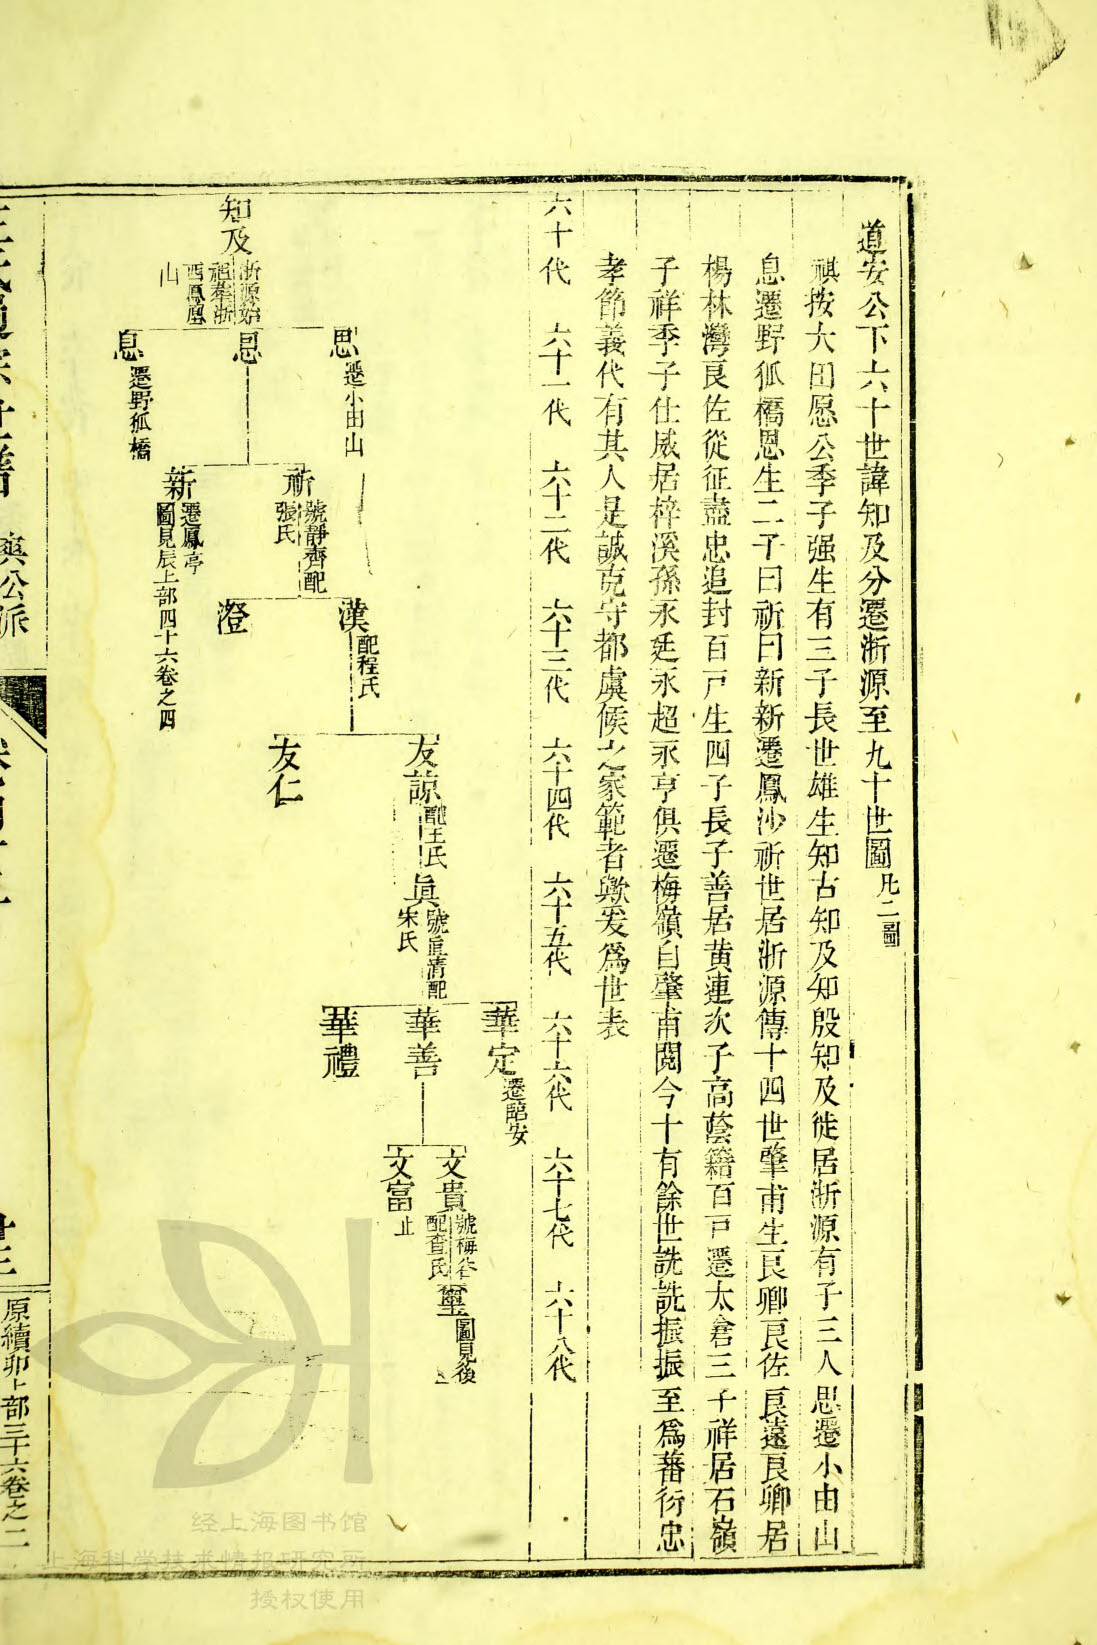 道安公下六十世諱知及分遷浙源至九十世圖凡二圖
祺按大田愿公季子强生有三子長世雄生知古知及知殷知及徙居浙源有子三人思遷小由山
息遷野狐橋恩生二子曰祈曰新新遷鳳沙祈世居浙源傳十四世肇甫生良卿良佐良遠良卿居
楊林灣良佐從征盡忠追封百戸生四子長子善居黄連次子高蔭籍百戸遷太倉三子祥居石嶺
子祥季子仕威居梓溪孫永廷永超永亨俱遷梅嶺自肇甫閱今十有餘世詵詵振振至爲蕃衍忠
孝節義代有其人是誠克守都虞候之家範者歟爰爲世表
六十代 六十一代 六十二代 六十三代 六十四代 六十五代 六十六代 六十七代 六十八代
知及 浙源始祖葬浙西鳳凰山
思 遷小由山
恩
息 遷野狐橋
祈 號靜齊配張氏
新 遷鳳亭圖見辰上部四十六卷之四
漢 配程氏
澄
友諒 配王氏
友仁
眞 號直清配宋氏
華定 遷臨安
華善
華禮
文貴 號梅谷配查氏
文富 止
璽 圖見後
原續卯上部三十六卷之二
经上海图书馆
上海科学技术情报研究所
授权使用